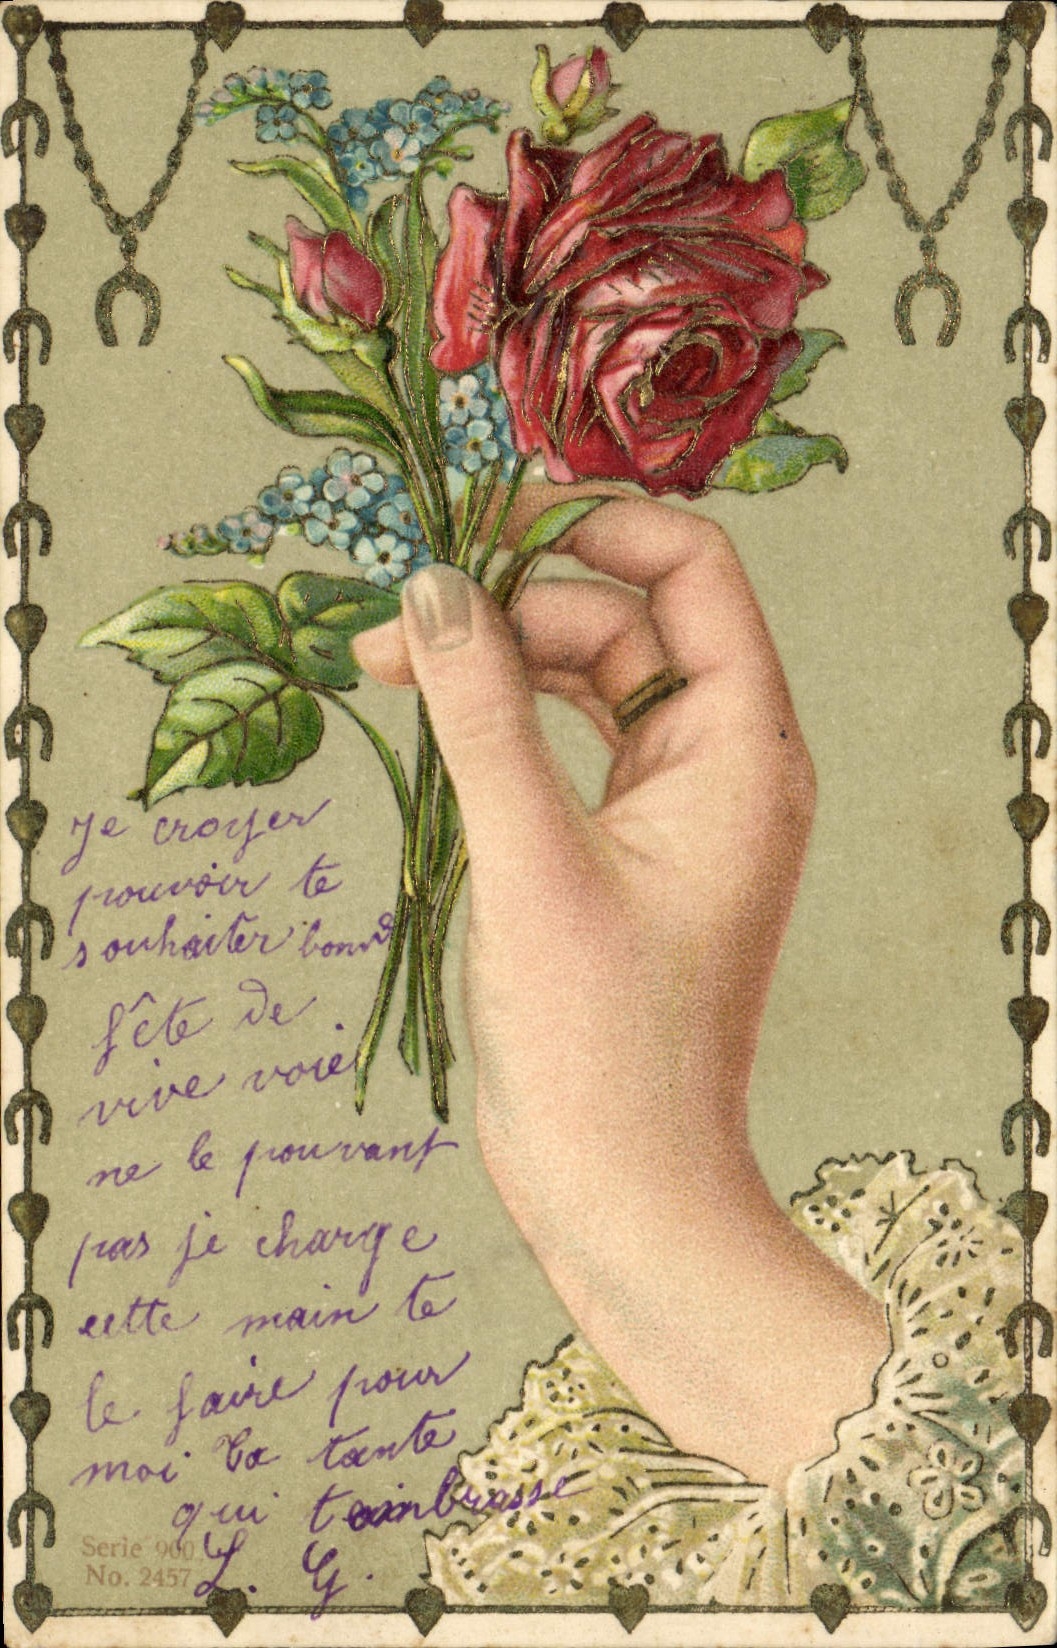 Je croyer
pouvoir te
souhaiter bonne
fête de
vive voie
ne le pouvant
pas je charge
cette main te
le faire pour
moi Ta tante
qui t'embrasse
L. G.
Serie 900
No. 2457